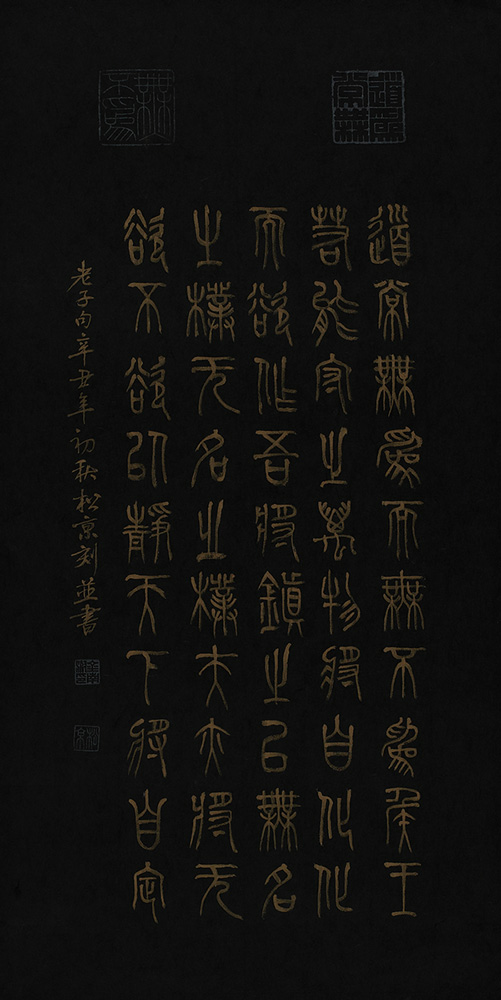 道常無為
無不為
道常無為而無不為侯王
若能守之萬物將自化化
而欲作吾將鎮之以無名
之樸无名之樸夫亦將无
欲不欲以靜天下將自定
老子句辛丑年初秋松京刻並書